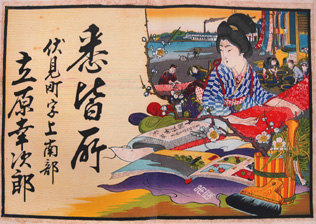 悉皆所
伏見町字上南部
立原幸次郎